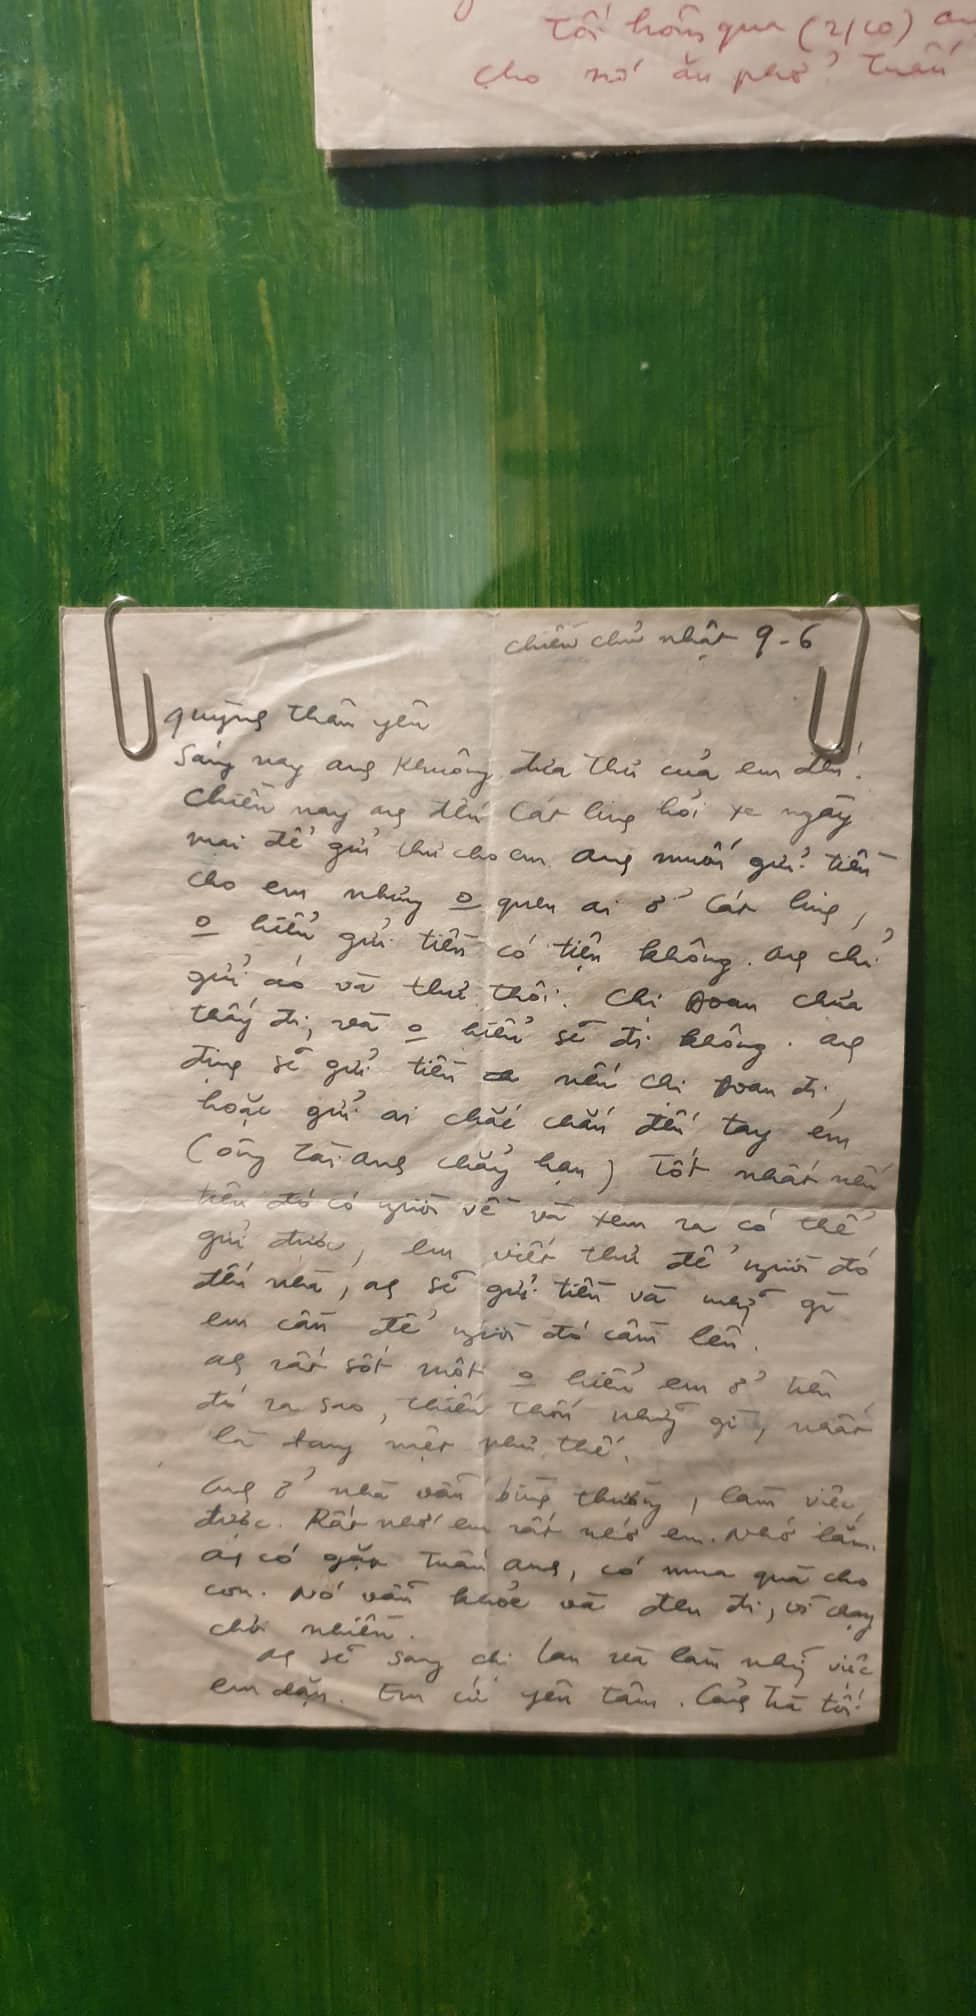 Tối hôm qua (2/10) an
cho nó ăn phở. Tuấn
Chiều chủ nhật 9-6
Quỳnh thân yêu
Sáng nay ang Khuông đưa thư của em đến.
Chiều nay ag đến Cát ling hỏi xe ngày
mai để gửi thư cho em. Ang muốn gửi tiền
cho em nhưng o quen ai ở Cát ling,
o hiểu gửi tiền có tiện không. Ag chỉ
gửi áo và thư thôi. Chị Đoan chưa
thấy đi, và o hiểu sẽ đi không. Ag
định sẽ gửi tiền nếu chị Đoan đi,
hoặc gửi ai chắc chắn đến tay em
(ông Tài ang chẳng hạn) Tốt nhất nếu
trên đó có người về và xem ra có thể
gửi được, em viết thư để người đó
đến nhà, ag sẽ gửi tiền và những gì
em cần để người đó cầm lên.
Ag rất sốt ruột o hiểu em ở trên
đó ra sao, thiếu thốn những gì, nhất
là đang mệt như thế.
Ang ở nhà vẫn bình thường, làm việc
được. Rất nhớ em rất nhớ em. Nhớ lắm.
Ag có gặp Tuấn Ang, có mua quà cho
con. Nó vẫn khỏe và đen đi, vì chạy
chơi nhiều.
Ag sẽ sang chị Lan và làm những việc
em dặn. Em cứ yên tâm. Cảng Trà tối